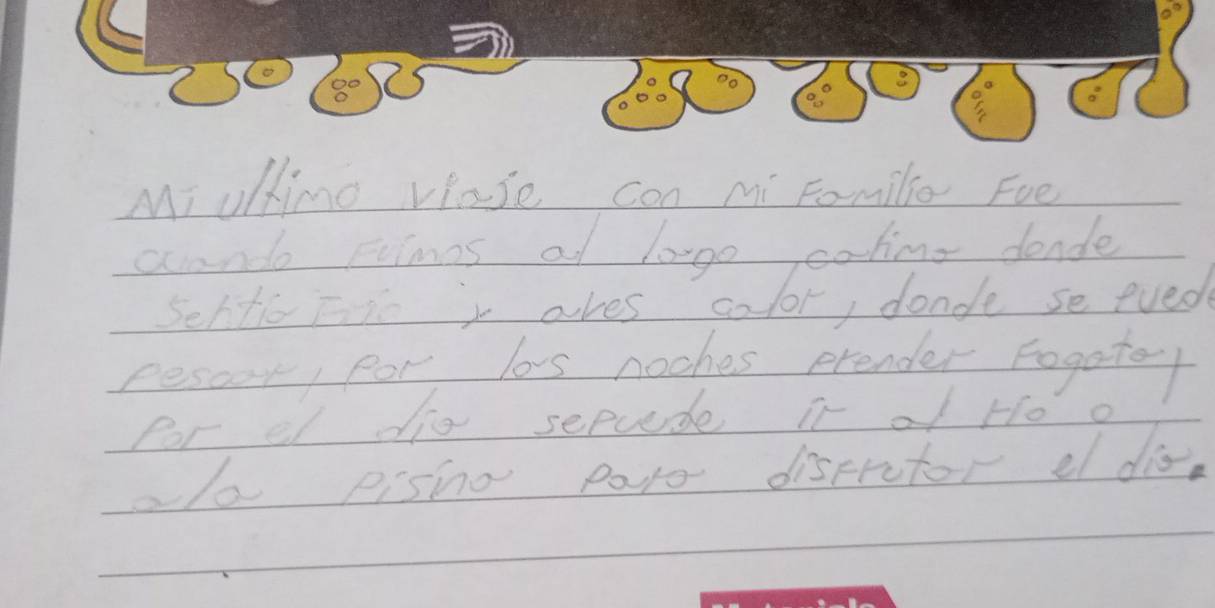 Mi ultimo viaje con mi Familia Fue
cuando Fuimos al lago colima donde
Sentia Frio y aves calor, donde se puede
pescar, por las noches prender Fogata,
por el dia sepuede ir al rio o
ala pisina para disfrutar el dia.